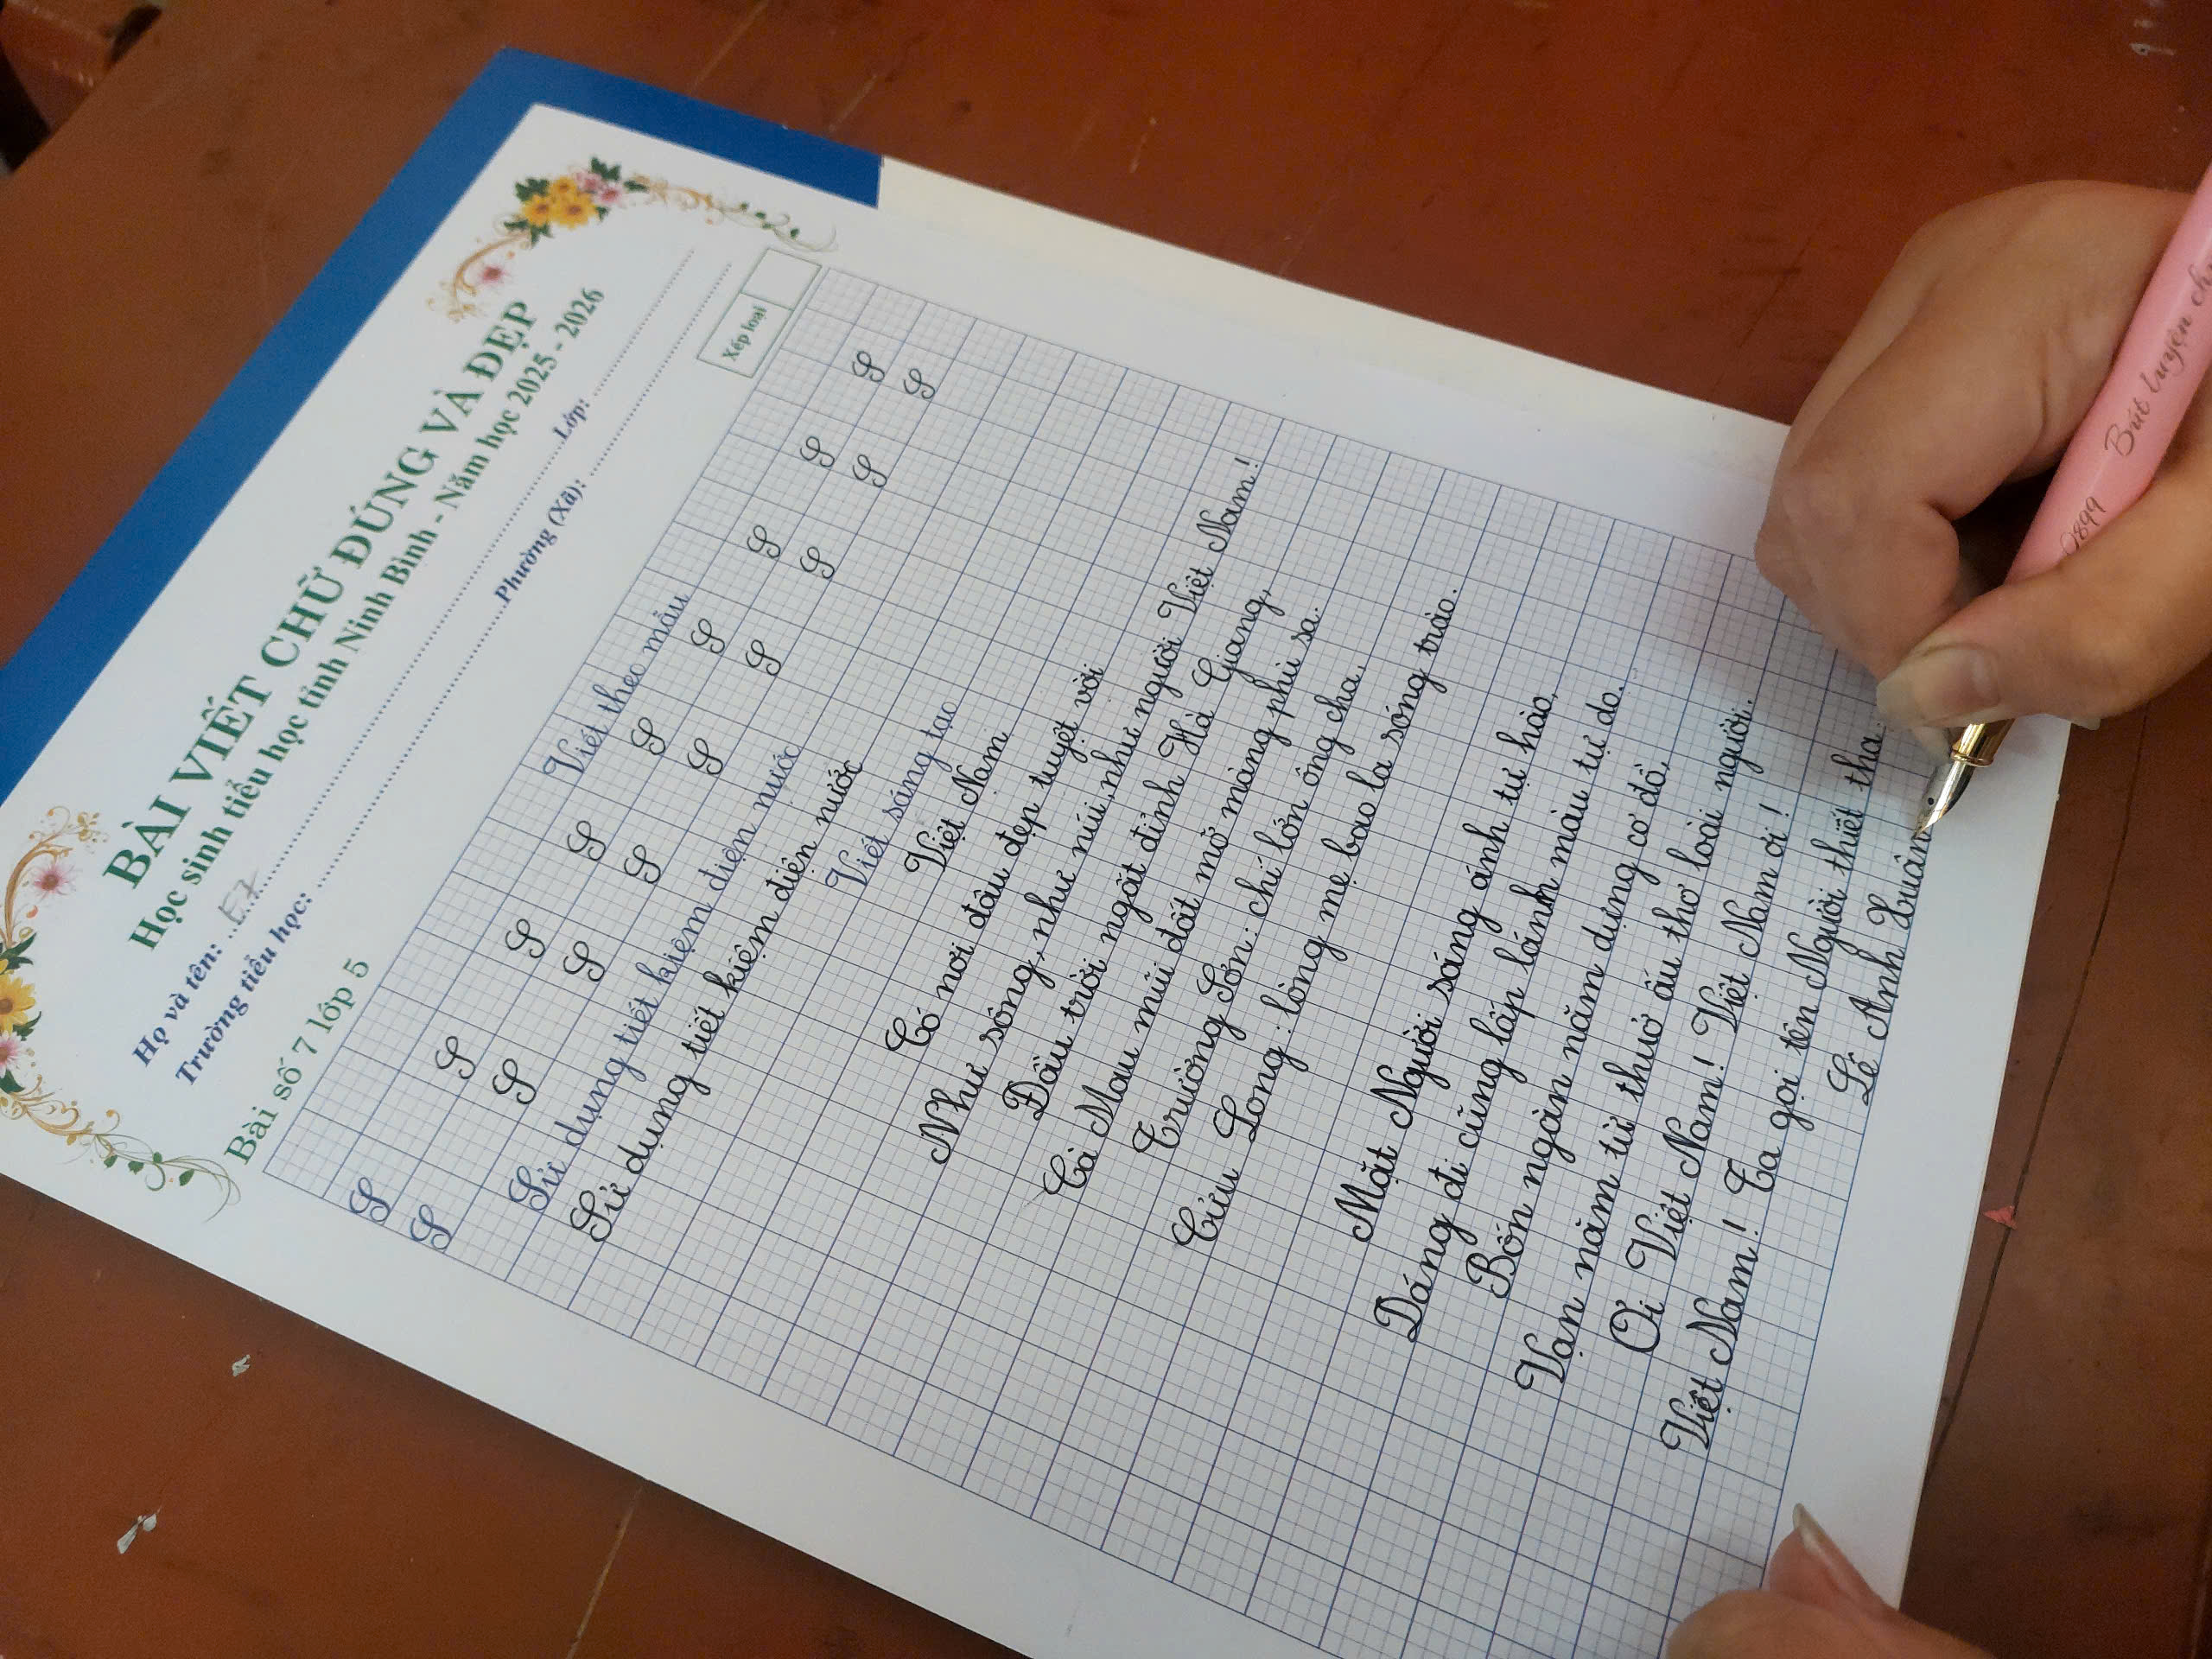 BÀI VIẾT CHỮ ĐÚNG VÀ ĐẸP
Học sinh tiểu học tỉnh Ninh Bình - Năm học 2025 - 2026
Họ và tên: E7 Lớp:
Trường tiểu học: Phường (Xã):
Bài số 7 lớp 5
Xếp loại
Viết theo mẫu
S S S S S S S S S
S S S S S S S S S
Sử dụng tiết kiệm điện nước
Sử dụng tiết kiệm điện nước
Viết sáng tạo
Việt Nam
Có nơi đâu đẹp tuyệt vời
Như sông, như núi, như người Việt Nam!
Đầu trời ngất đỉnh Hà Giang,
Cà Mau mũi đất mỡ màng phù sa.
Trường Sơn: chí lớn ông cha,
Cửu Long: lòng mẹ bao la sóng trào.
Mặt Người sáng ánh tự hào,
Dáng đi cũng lấp lánh màu tự do.
Bốn ngàn năm dựng cơ đồ,
Vạn năm từ thuở ấu thơ loài người.
Ơi Việt Nam! Việt Nam ơi!
Việt Nam! Ta gọi tên Người thiết tha.
Lê Anh Xuân
Bút luyện ch
0899